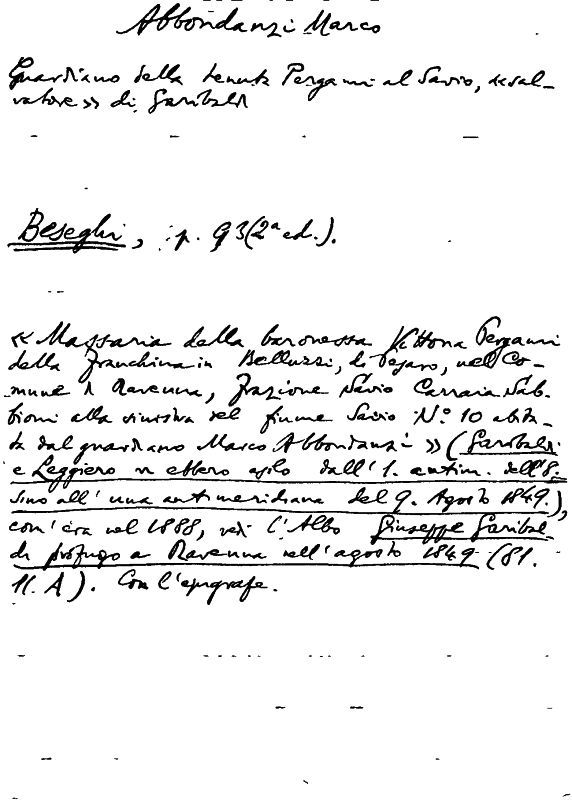 Abbondanzi Marco
Guardiano della tenuta Pergami al Savio, «sal-
vatore» di Garibaldi
Beseghi, p. 93 (2ª ed.).
«Massaria della baronessa Vittoria Pergami
della Franchina in Belluzzi, di Pesaro, nel Co-
mune di Ravenna, frazione Savio Carraia Sab-
bioni alla sinistra del fiume Savio N.° 10 abita-
ta dal guardiano Marco Abbondanzi» (Garibaldi
e Leggiero vi ebbero asilo dall'1. antim. dell'8.
sino all'una antimeridiana del 9. Agosto 1849.),
com'era nel 1888, vedi l'Albo Giuseppe Garibal-
di profugo a Ravenna nell'agosto 1849 (81.
11. A). Con l'epigrafe.